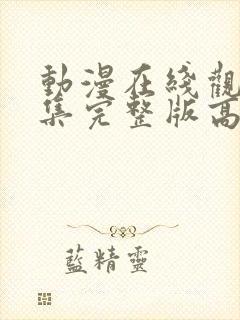 動漫在綫觀
集完整版高
藍精靈